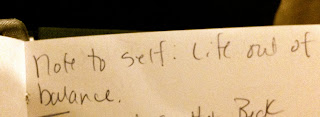 Note to self: Life out of
balance.
Back